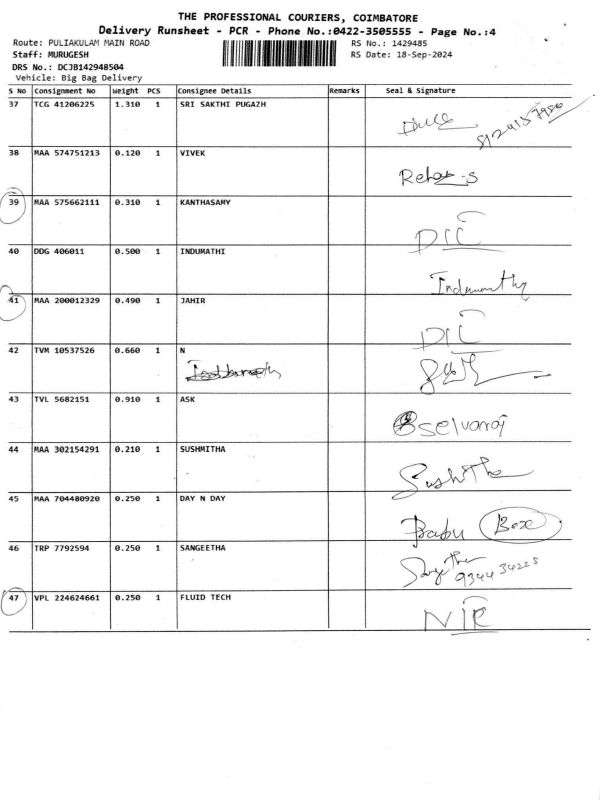 THE PROFESSIONAL COURIERS, COIMBATORE
Delivery Runsheet - PCR - Phone No.:0422-3505555 - Page No.:4
Route: PULIAKULAM MAIN ROAD RS No.: 1429485
Staff: MURUGESH RS Date: 18-Sep-2024
DRS No.: DCJB142948504
Vehicle: Big Bag Delivery
S No Consignment No Weight PCS Consignee Details Remarks Seal & Signature
37 TCG 41206225 1.310 1 SRI SAKTHI PUGAZH
38 MAA 574751213 0.120 1 VIVEK
39 MAA 575662111 0.310 1 KANTHASAMY
DIL
40 DDG 406011 0.500 1 INDUMATHI
Indumathy
41 MAA 200012329 0.490 1 JAHIR
DIL
42 TVM 10537526 0.660 1 N
43 TVL 5682151 0.910 1 ASK
Selvaraj
44 MAA 302154291 0.210 1 SUSHMITHA
45 MAA 704480920 0.250 1 DAY N DAY
Babu Box
46 TRP 7792594 0.250 1 SANGEETHA
47 VPL 224624661 0.250 1 FLUID TECH
NIR